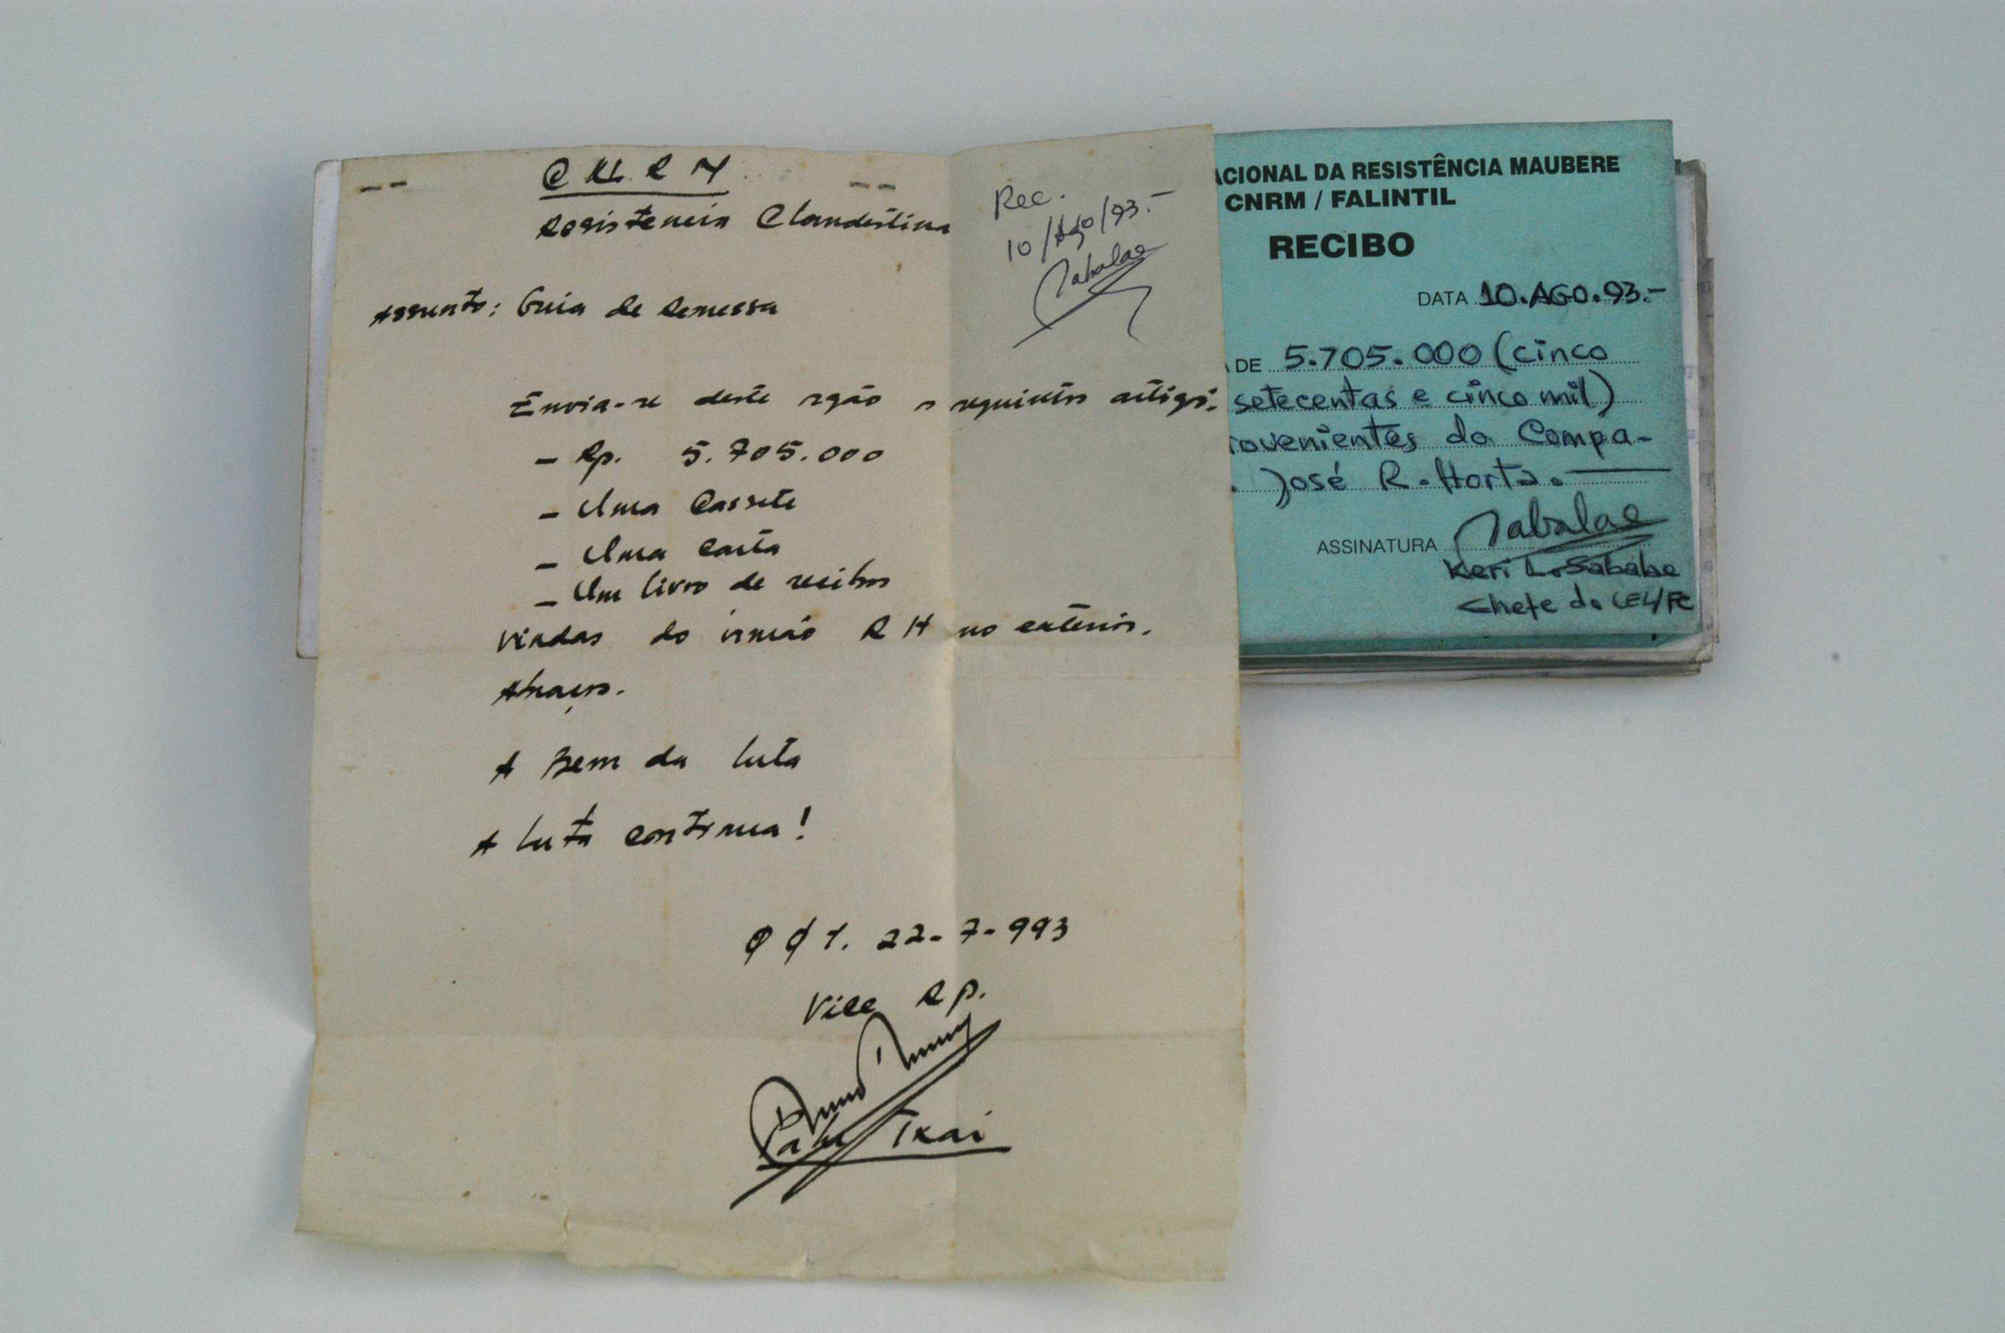 C N R M
Resistencia Clandestina
Rec.
10/Ago/93.-
Sabalae
Assunto: Guia de Remessa
Envia-se deste orgão os seguintes artigos:
- Rp. 5.705.000
- Uma Cassete
- Uma Carta
- Um livro de recibos
Vindas do irmão R H no exterior.
Abraços.
A Bem da luta
A luta continua!
22-7-993
Vice Rp.
Txai
ACIONAL DA RESISTÊNCIA MAUBERE
CNRM / FALINTIL
RECIBO
DATA 10.AGO.93.-
DE 5.705.000 (cinco
setecentas e cinco mil)
rovenientes do Compa-
. José R. Horta.
ASSINATURA Sabalae
Keri L. Sabalae
Chefe do CEL/FC